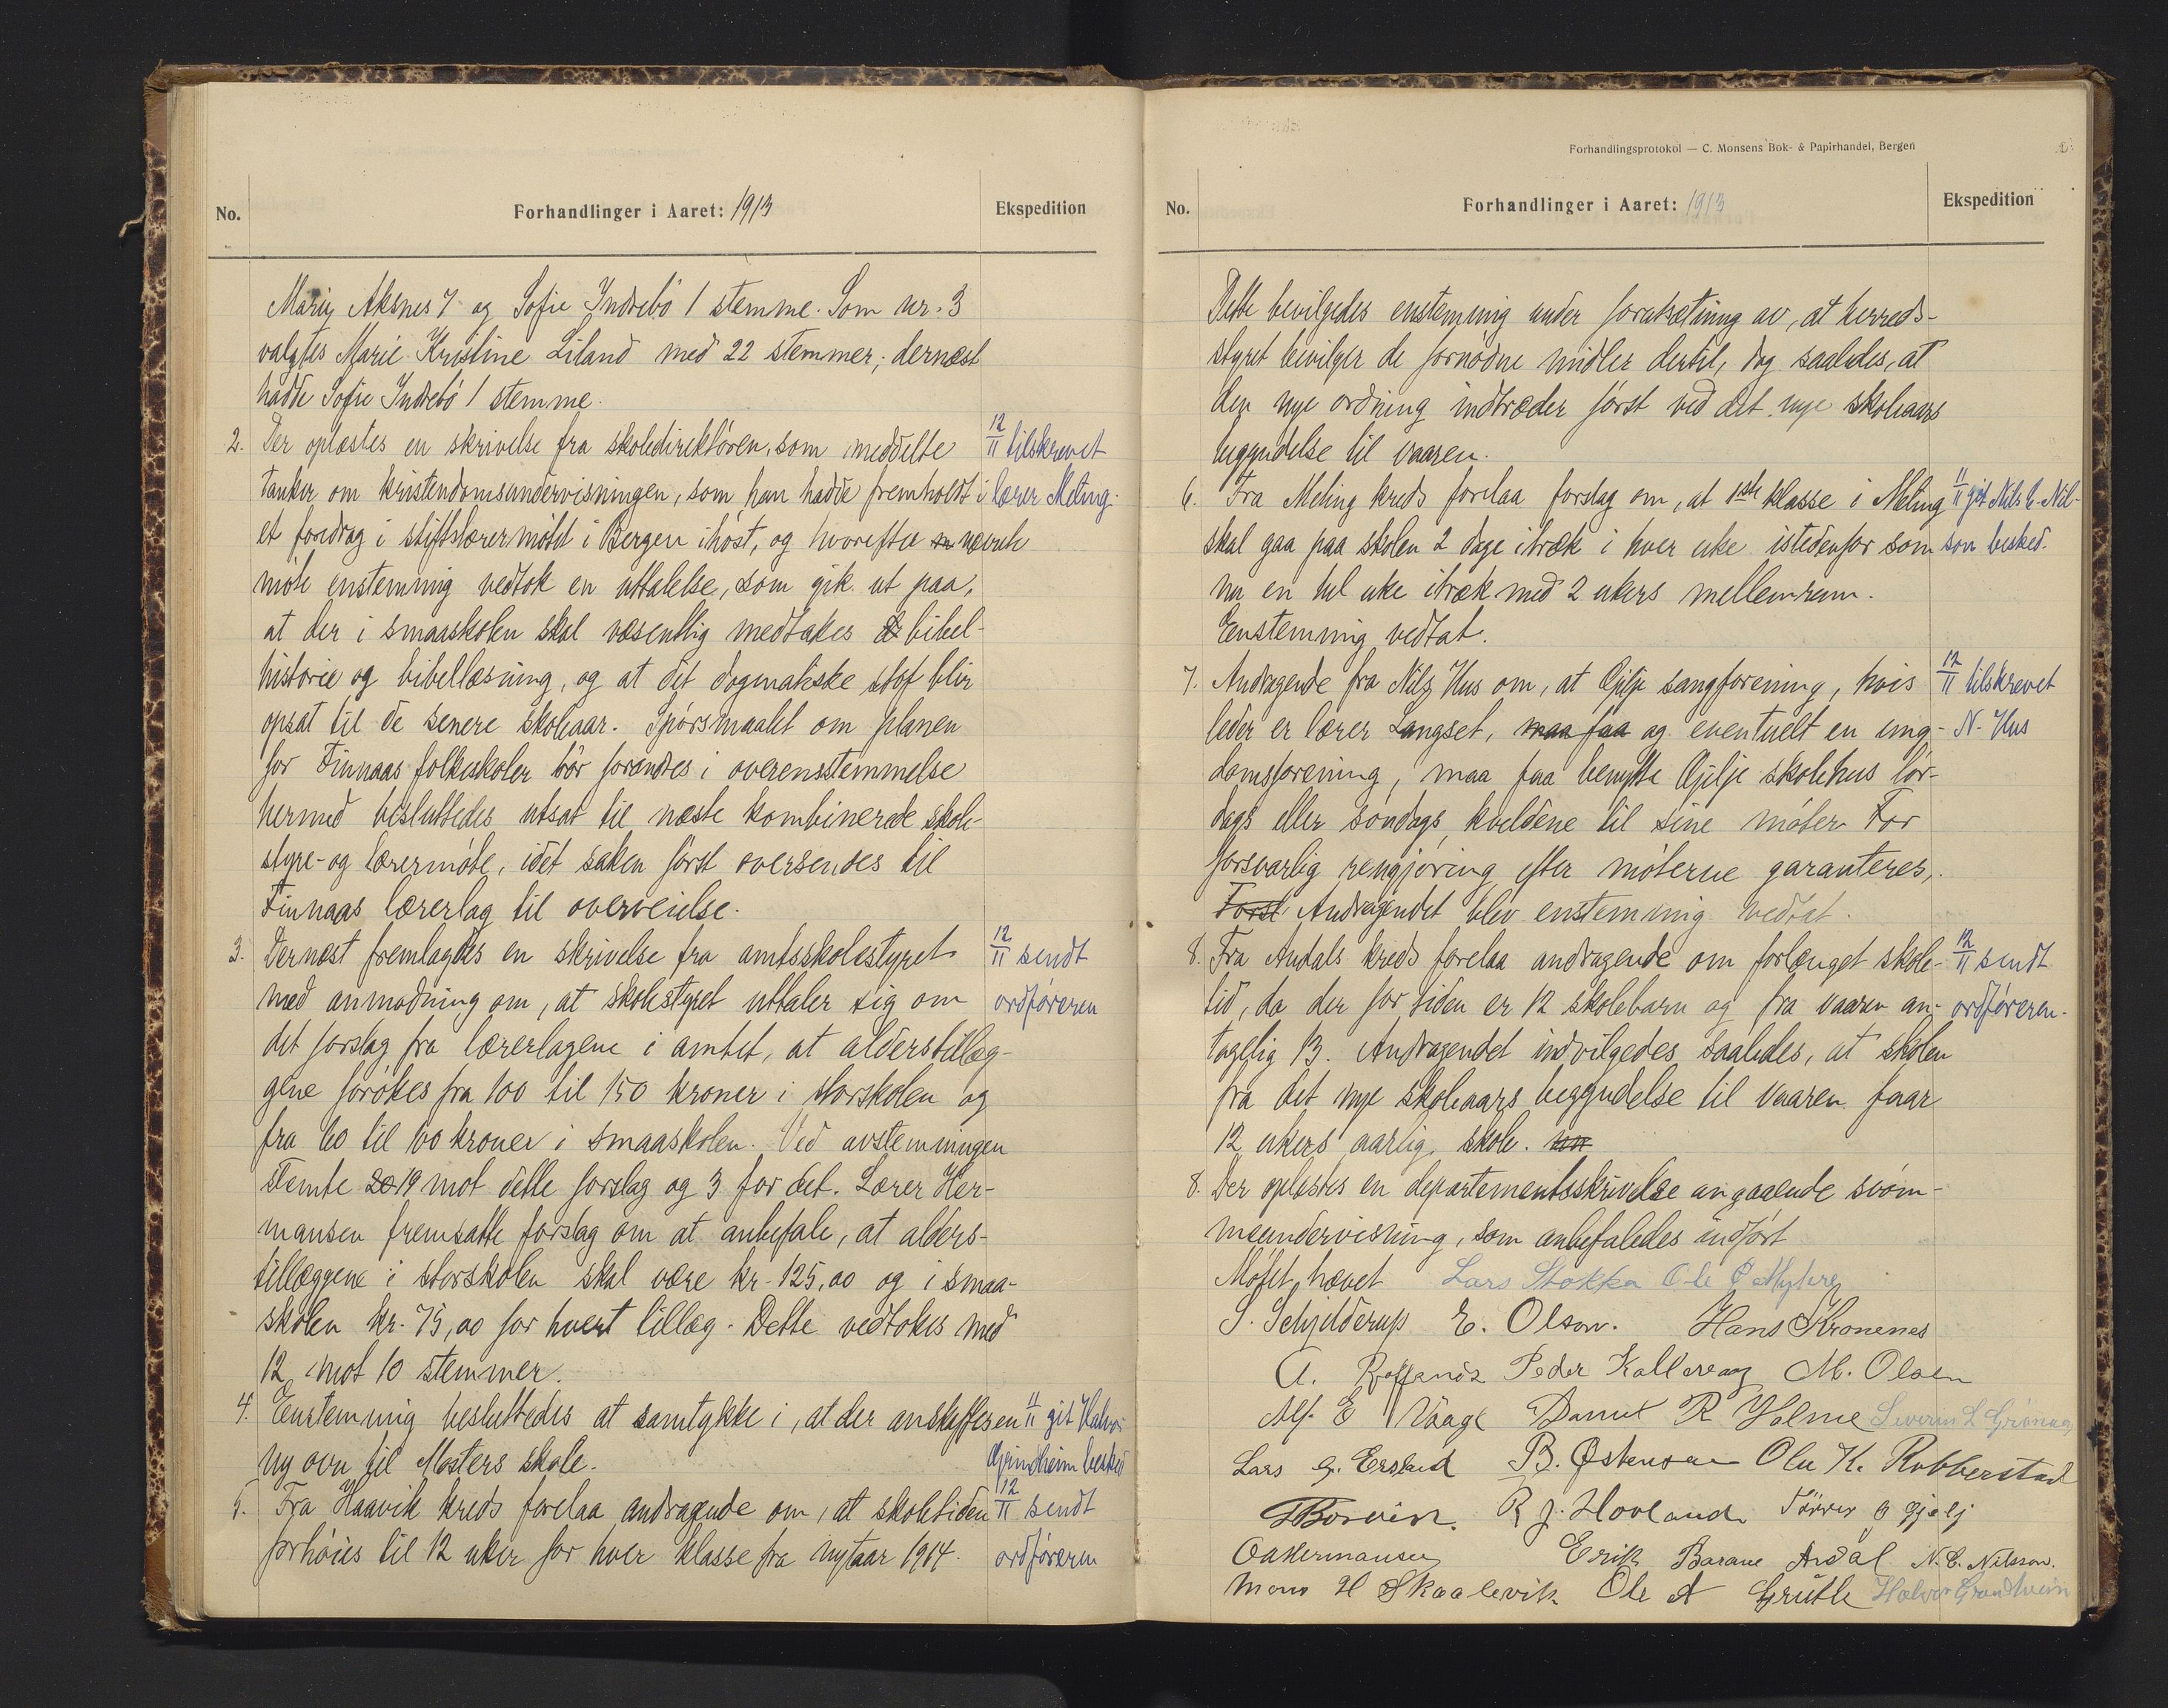 No.
Forhandlinger i Aaret: 1913
Ekspedition
Marij Aksnes 7 og Sofie Indrebö 1 stemme. Som nr. 3
valgtes Marie Kristine Liland med 22 stemmer, dernæst
hadde Sofie Indrebö 1 stemme.
2. Der oplæstes en skrivelse fra skoledirektören, som meddelte
tanker om kristendomsundervisningen, som han hadde fremholdt i
et foredrag i stiftslærermötet i Bergen ihöst, og hvorefter nævnte
möte enstemmig vedtok en uttalelse, som gik ut paa,
at der i smaaskolen skal væsentlig medtakes bibel-
historie og bibellæsning, og at det dogmatiske stof blir
opsat til de senere skoleaar. Spörsmaalet om planen
for Finnaas folkeskoler bör forandres i overensstemmelse
hermed besluttedes utsat til næste kombinerede skole-
styre- og lærermöte, idet saken först oversendes til
Finnaas lærerlag til overveielse.
12/11 tilskrevet
lærer Meling.
3. Dernæst fremlagdes en skrivelse fra amtsskolestyret
med anmodning om, at skolestyret uttaler sig om
det forslag fra lærerlagene i amtet, at alderstillæg-
gene forökes fra 100 til 150 kroner i storskolen og
fra 60 til 100 kroner i smaaskolen. Ved avstemningen
stemte 20 19 mot dette forslag og 3 for det. Lærer Her-
mansen fremsatte forslag om at anbefale, at alders-
tillæggene i storskolen skal være kr. 125,00 og i smaa-
skolen kr. 75,00 for hvert tillæg. Dette vedtokes med
12 mot 10 stemmer.
12/11 sendt
ordföreren
4. Enstemmig besluttedes at samtykke i, at der anskaffes en
ny ovn til Mosters skole.
11/11 git Halvor
Grindheim besked
5. Fra Haavik kreds forelaa andragende om, at skoletiden
forhöies til 12 uker for hver klasse fra nytaar 1914.
12/11 sendt
ordföreren
Forhandlingsprotokol — C. Monsens Bok- & Papirhandel, Bergen
No.
Forhandlinger i Aaret: 1913
Ekspedition
Dette bevilgedes enstemmig under forutsætning av, at herreds-
styret bevilger de fornödne midler dertil, dog saaledes, at
den nye ordning indtræder först ved det nye skoleaars
begyndelse til vaaren.
6. Fra Meling kreds forelaa forslag om, at 1ste klasse i Meling
skal gaa paa skolen 2 dage itræk i hver uke istedenfor som
nu en hel uke itræk med 2 ukers mellemrum.
Enstemmig vedtat.
11/11 git Nils C. Nil-
son besked.
7. Andragende fra Nils Hus om, at Gjilje sangforening, hvis
leder er lærer Langset, maa faa og eventuelt en ung-
domsforening, maa faa benytte Gjilje skolehus lör-
dags eller söndags kveldene til sine möter. For
forsvarlig rengjöring efter möterne garanteres,
Först Andragendet blev enstemmig vedtat.
12/11 tilskrevet
N. Hus
8. Fra Andals kreds forelaa andragende om forlænget skole-
tid, da der for tiden er 12 skolebarn og fra vaaren an-
tagelig 13. Andragendet indvilgedes saaledes, at skolen
fra det nye skoleaars begyndelse til vaaren faar
12 ukers aarlig skole.
12/11 sendt
ordföreren.
8. Der oplæstes en departementsskrivelse angaaende svöm-
meundervisning, som anbefaledes indfört
Mötet hævet Lars Stokka Ole Myhre
S. Schjelderup E. Olson. Hans Kronenes
A. Peder Kallevaag M. Olsen
Alf. E Vaage Daniel R Holme Severin L Grönnaas
Lars G. Erslard B. Østensen Ole K. Rubberstad
R J. Hovland
Oakermansen Erik Barane Andal N. C. Nilsson.
Mons H Skaalevik Ole A Grutle Halvor Grindheim